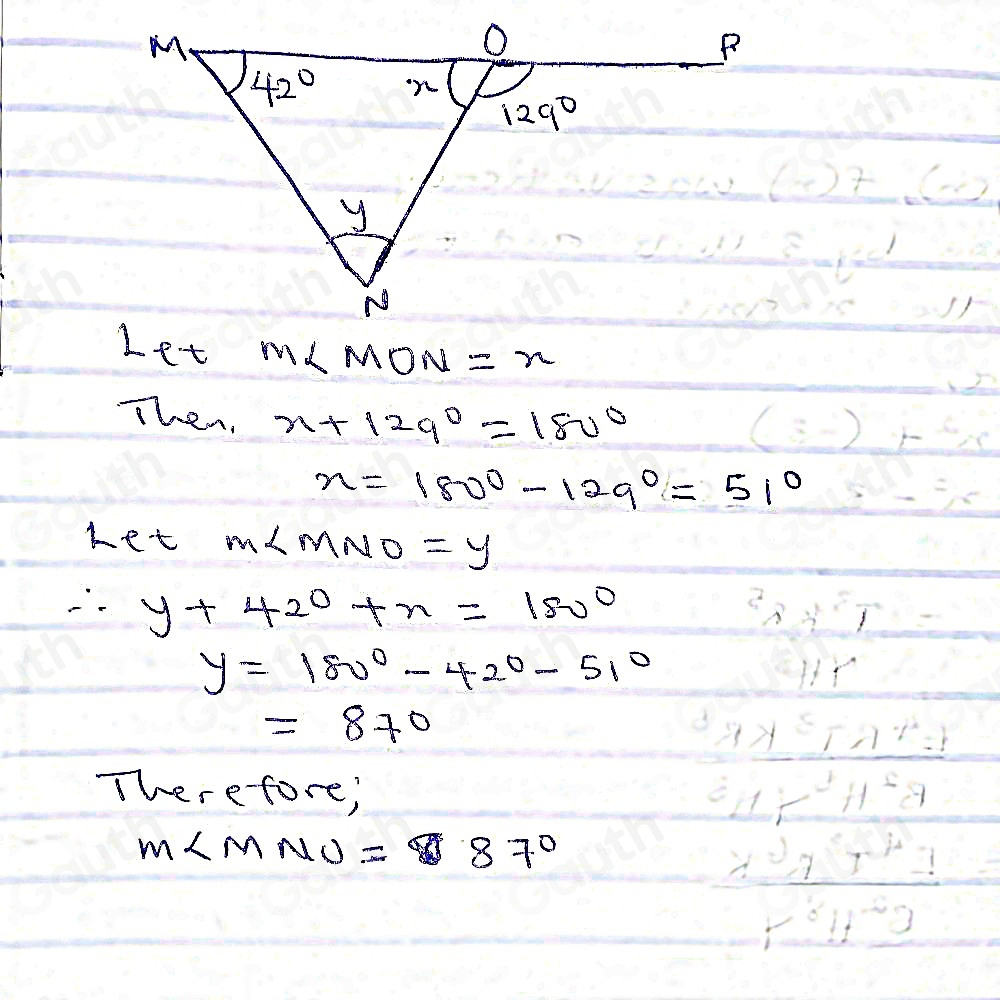 M O P
42° x 129°
y
N
Let m< MON = x
Then, x + 129° = 180°
x = 180° - 129° = 51°
Let m< MNO = y
∴ y + 42° + x = 180°
y = 180° - 42° - 51°
= 87°
Therefore;
m< MNO = 87°